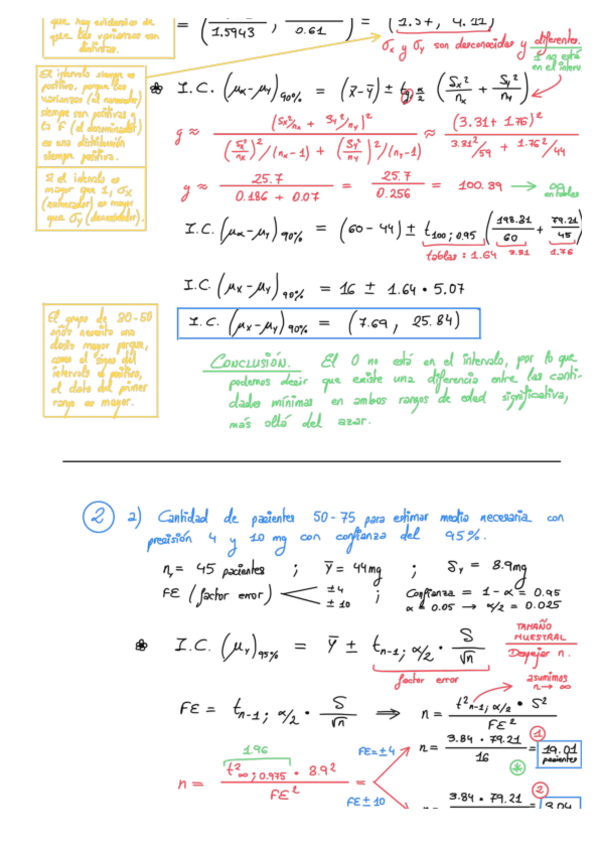 que hay evidencias de
que las varianzas son
distintas.
= ( 1.5943 , 0.61 ) = ( 1.37, 4.11)
σx y σy son desconocidas y diferentes.
1 no está
en el interv.
El intervalo siempre es
positivo, porque las
varianzas (el numerador)
siempre son positivas y
la F (el denominador)
es una distribución
siempre positiva.
Si el intervalo es
mayor que 1, σx
(numerador) es mayor
que σy (denominador).
* I.C. (μx-μy)90% = (x̄-ȳ) ± tg; α/2 (Sx²/nx + Sy²/ny)
g ≈ (Sx²/nx + Sy²/ny)² / ((Sx²/nx)²/(nx-1) + (Sy²/ny)²/(ny-1)) ≈ (3.31+ 1.76)² / (3.31²/59 + 1.76²/44)
g ≈ 25.7 / (0.186 + 0.07) = 25.7 / 0.256 = 100.39 → ∞ en tablas
I.C. (μx-μy)90% = (60-44) ± t100; 0.95 (198.81/60 + 79.21/45)
tablas: 1.64 3.31 1.76
I.C. (μx-μy)90% = 16 ± 1.64 · 5.07
I.C. (μx-μy)90% = (7.69, 25.84)
El grupo de 30-50
años necesita una
dosis mayor porque,
como el signo del
intervalo es positivo,
el dato del primer
rango es mayor.
CONCLUSIÓN. El 0 no está en el intervalo, por lo que
podemos decir que existe una diferencia entre las canti-
dades mínimas en ambos rangos de edad significativa,
más allá del azar.
2 a) Cantidad de pacientes 50-75 para estimar media necesaria con
precisión 4 y 10 mg con confianza del 95%.
ny = 45 pacientes ; ȳ = 44mg ; Sy = 8.9mg
FE (factor error) ±4 ; Confianza = 1-α = 0.95
±10 α = 0.05 → α/2 = 0.025
* I.C. (μy)95% = ȳ ± tn-1; α/2 · S/√n
TAMAÑO
MUESTRAL
Despejar n.
factor error
asumimos
n → ∞
FE = tn-1; α/2 · S/√n ⇒ n = t²n-1; α/2 · S² / FE²
1.96
n = t²∞; 0.975 · 8.9² / FE² =
FE=±4 n = 3.84 · 79.21 / 16 = 19.01 pacientes 1
FE±10 3.84 · 79.21 = 3.04 2